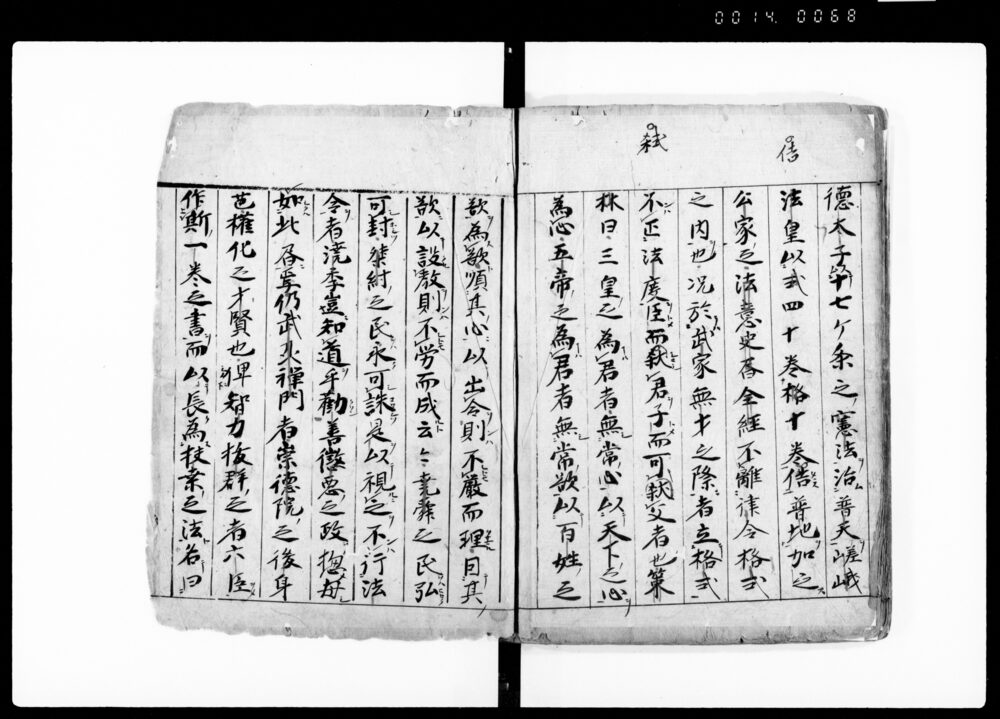 0014. 0068
借
弑
德太子十七ケ条之憲法治普天嵯峨
法皇以式四十巻格十巻借普地加之
公家之法意史書全経不離律令格式
之内也况於武家無才之際者立格式
不正法度臣而弑君子而可弑父者也策
林曰三皇之為君者無常心以天下之心
為心五帝之為君者無常欲以百姓之
欲為欲順其心以出令則不厳而理因其
欲以設教則不劳而成云々尭舜之民弘
可封桀紂之民永可誅是以視之不行法
令者澆季豈知道乎勸善懲悪之政揔毎
如此爰仍武火禅門者崇德院之後身
芭権化之才賢也智力抜群之者六臣
作斯一巻之書而以長為扶桒之法名曰